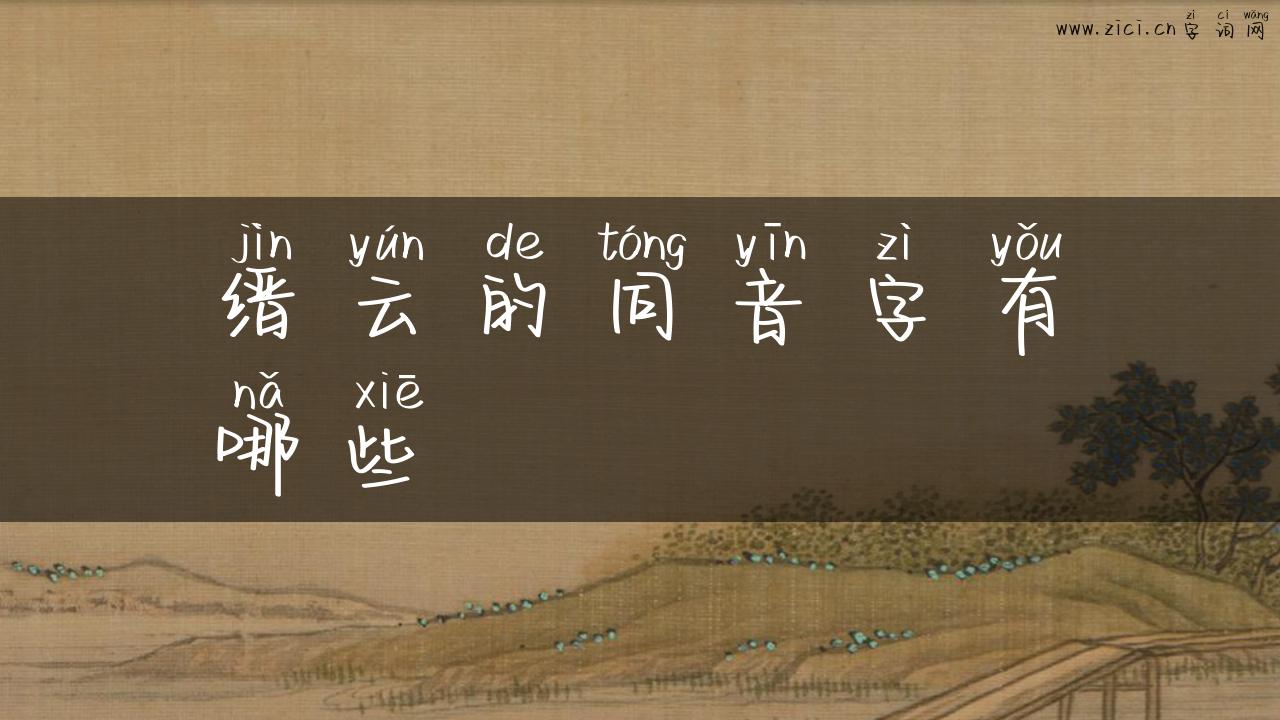 zì cí wǎng
www.zici.cn字词网
jìn yún de tóng yīn zì yǒu
缙云的同音字有
nǎ xiē
哪些